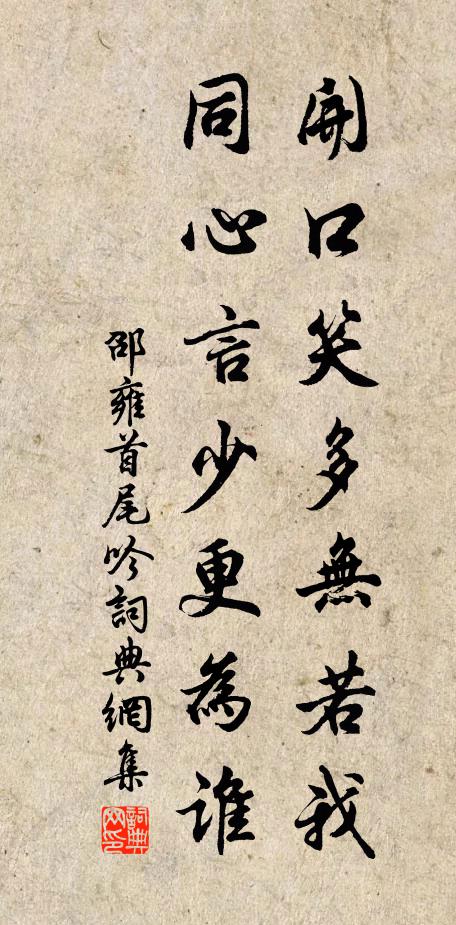 開口笑多無若我
同心言少更為誰
邵雍首尾吟詞典網集
詞典網印